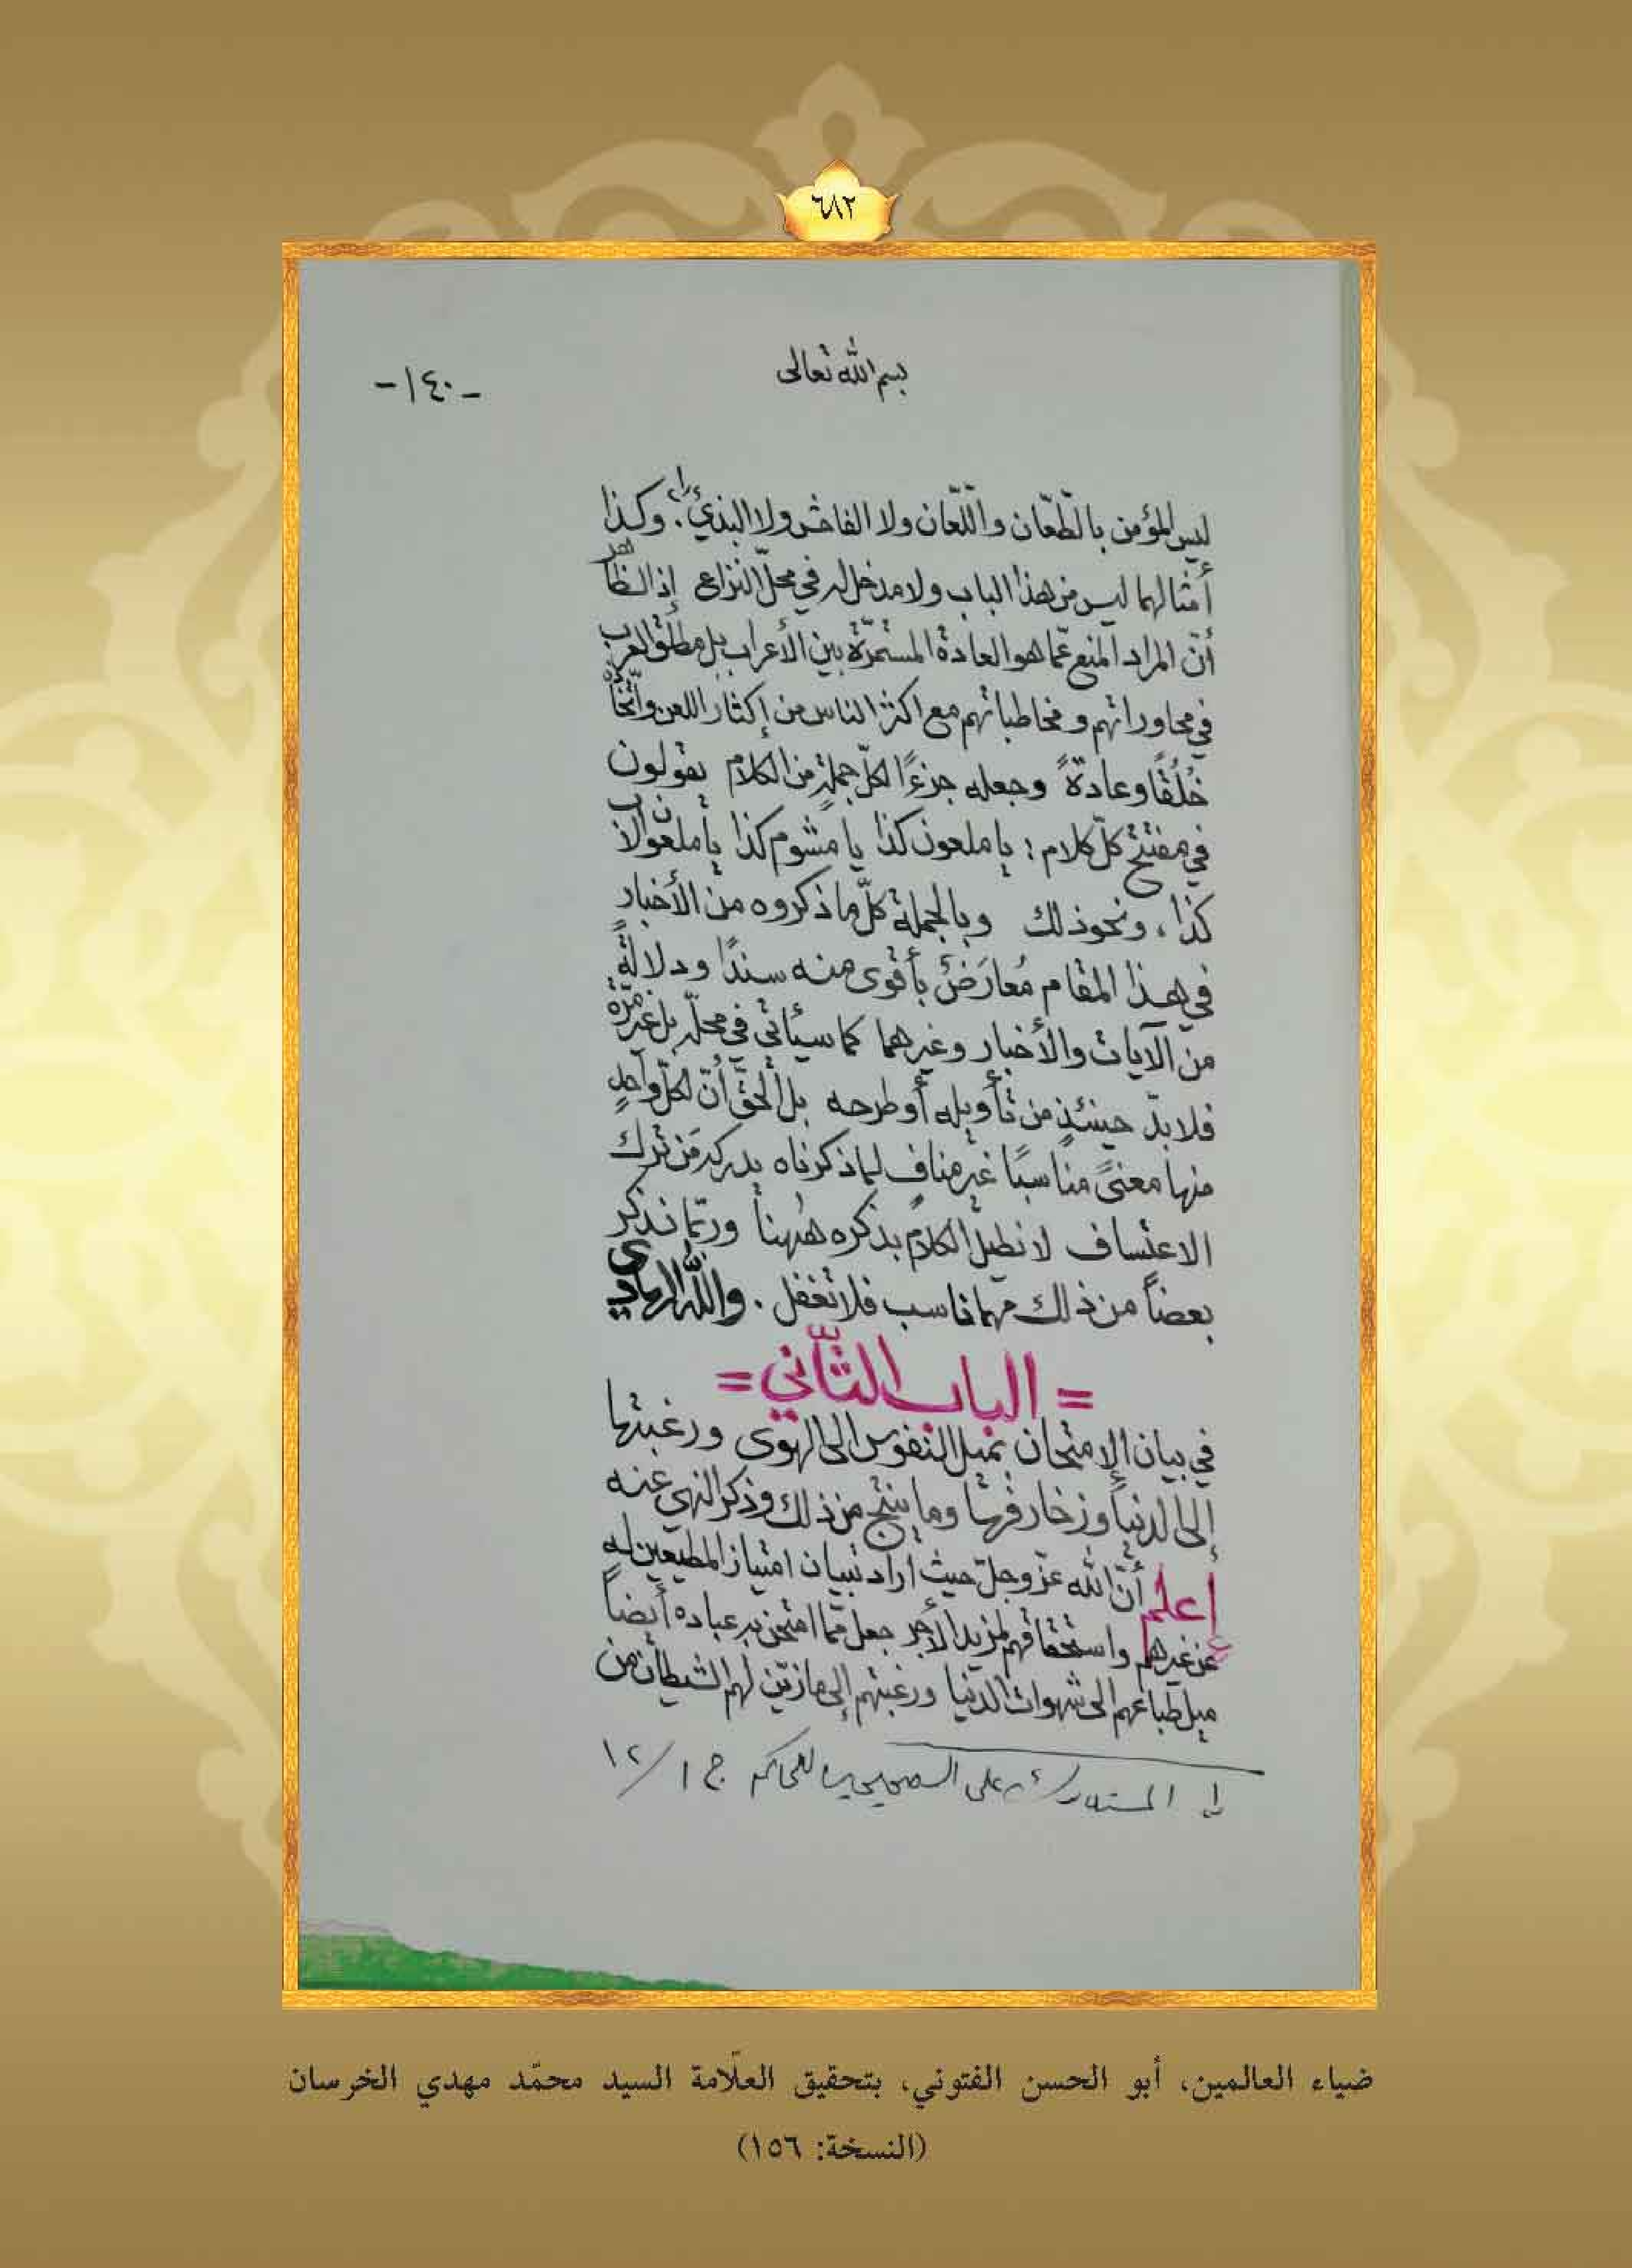 ٦٨٢
بسم الله تعالى
-١٤٠-
ليس المؤمن بالطّعّان واللّعّان ولا الفاحش ولا البذيّ(١). وكذا
أمثالهما ليس من هذا الباب ولا مدخل له في محلّ النزاع إذ الظاهر
أنّ المراد المنع عمّا هو العادة المستمرّة بين الأعراب بل مطلق العرب
في محاوراتهم ومخاطباتهم مع اكثر الناس من إكثار اللعن واتّخاذه
خُلُقًا وعادةً وجعله جزءًا لكلّ جملةٍ من الكلام يقولون
في مفتتح كلّ كلام: يا ملعون كذا يا مشوم كذا يا ملعون الأب
كذا، ونحو ذلك وبالجملة كلّ ما ذكروه من الأخبار
في هذا المقام مُعارَضٌ بأقوى منه سندًا ودلالةً
من الآيات والأخبار وغيرهما كما سيأتي في محلّه بل غير مرّة
فلا بدّ حينئذٍ من تأويله أو طرحه بل الحقّ أنّ لكلّ واحدٍ
منها معنىً مناسبًا غير منافٍ لما ذكرناه يدركه مَن ترك
الاعتساف لا نطيل الكلام بذكره ههنا وربّما نذكر
بعضاً من ذلك مهما ناسب فلا تغفل. والله الهادي
= الباب الثّاني =
في بيان الإمتحان بميل النفوس إلى الهوى ورغبتها
إلى الدنيا وزخارفها وما ينتج من ذلك وذكر النهي عنه
إعلم أنّ الله عزّ وجلّ حيث أراد تبيان امتياز المطيعين له
عن غيرهم واستحقاقهم لمزيد الأجر جعل ممّا امتحن به عباده أيضاً
ميل طباعهم إلى شهوات الدّنيا ورغبتهم إلى ما زيّن لهم الشيطان من
(١) المستدرك على الصحيحين للحاكم ج ١ / ١٢
ضياء العالمين، أبو الحسن الفتوني، بتحقيق العلّامة السيد محمّد مهدي الخرسان
(النسخة: ١٥٦)